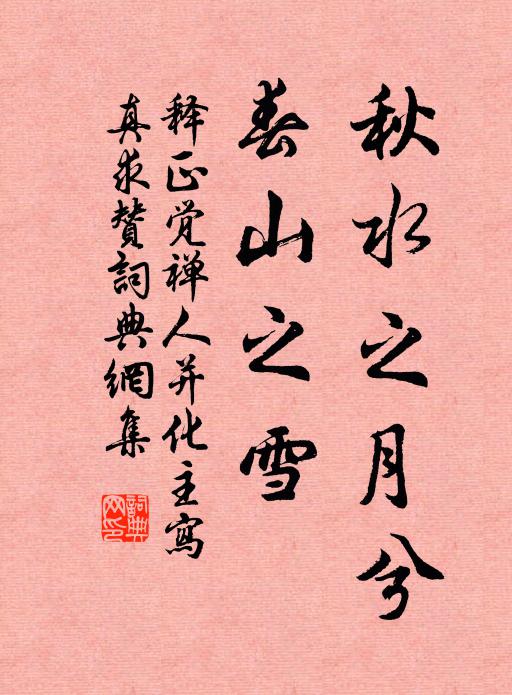 秋水之月兮
春山之雪
释正觉禅人并化主寫
真求賛詞典網集
詞典
网印